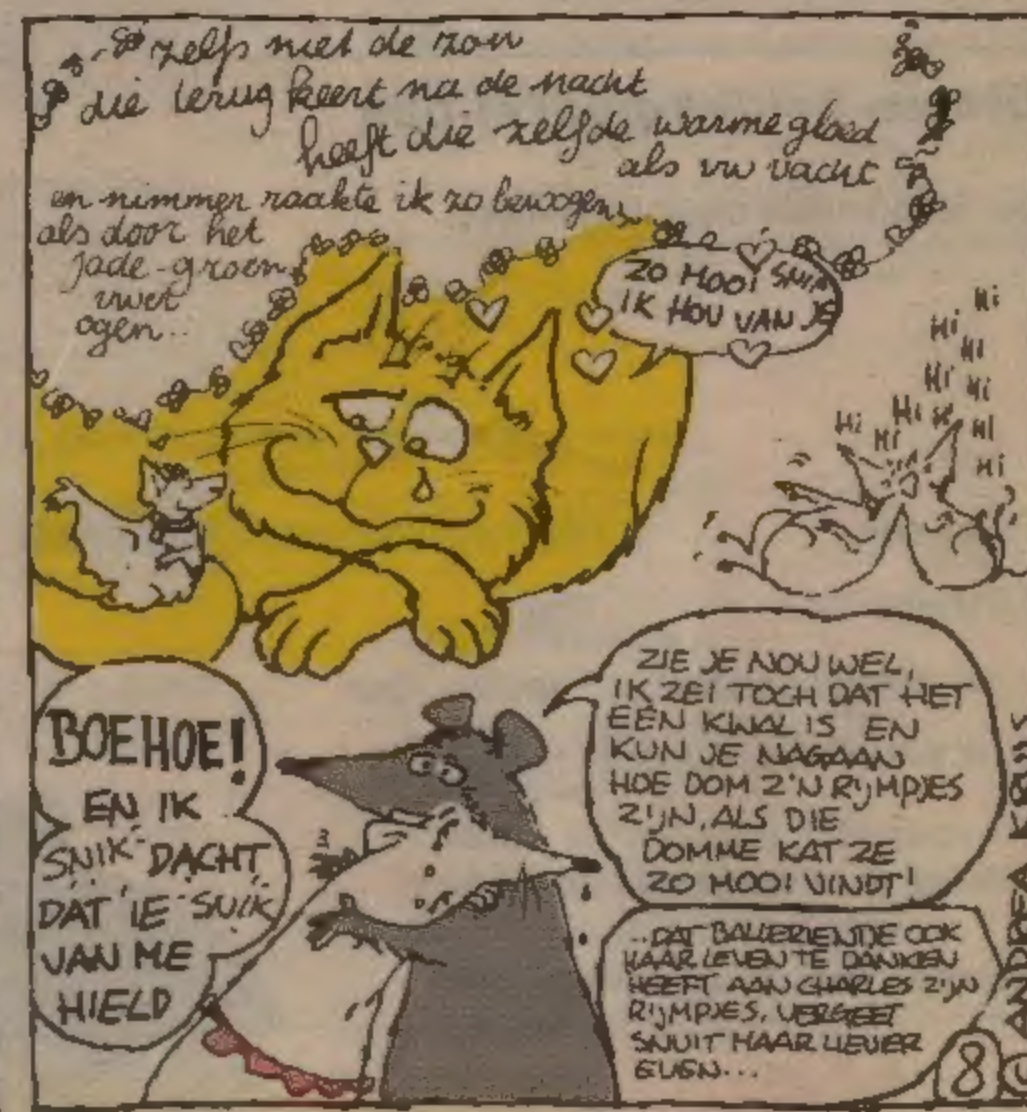 zelfs niet de zon
die terug keert na de nacht
heeft die zelfde warme gloed
als uw vacht
en nimmer raakte ik zo bewogen
als door het
jade-groen
uwer
ogen...
ZO MOOI SNIK
IK HOU VAN JE
Hi
Hi
Hi
Hi
Hi
Hi
Hi
Hi
Hi
Hi
Hi
BOEHOE!
EN IK
SNIK DACHT
DAT 'IE SNIK
VAN ME
HIELD
ZIE JE NOU WEL,
IK ZEI TOCH DAT HET
EEN KWAL IS EN
KUN JE NAGAAN
HOE DOM Z'N RIJMPJES
ZIJN, ALS DIE
DOMME KAT ZE
ZO MOOI VINDT!
...DAT BALLERIENTJE OOK
HAAR LEVEN TE DANKEN
HEEFT AAN CHARLES ZIJN
RIJMPJES, VERGEET
SNUIT MAAR LIEVER
EVEN...
8
© ANDREA KRUIS